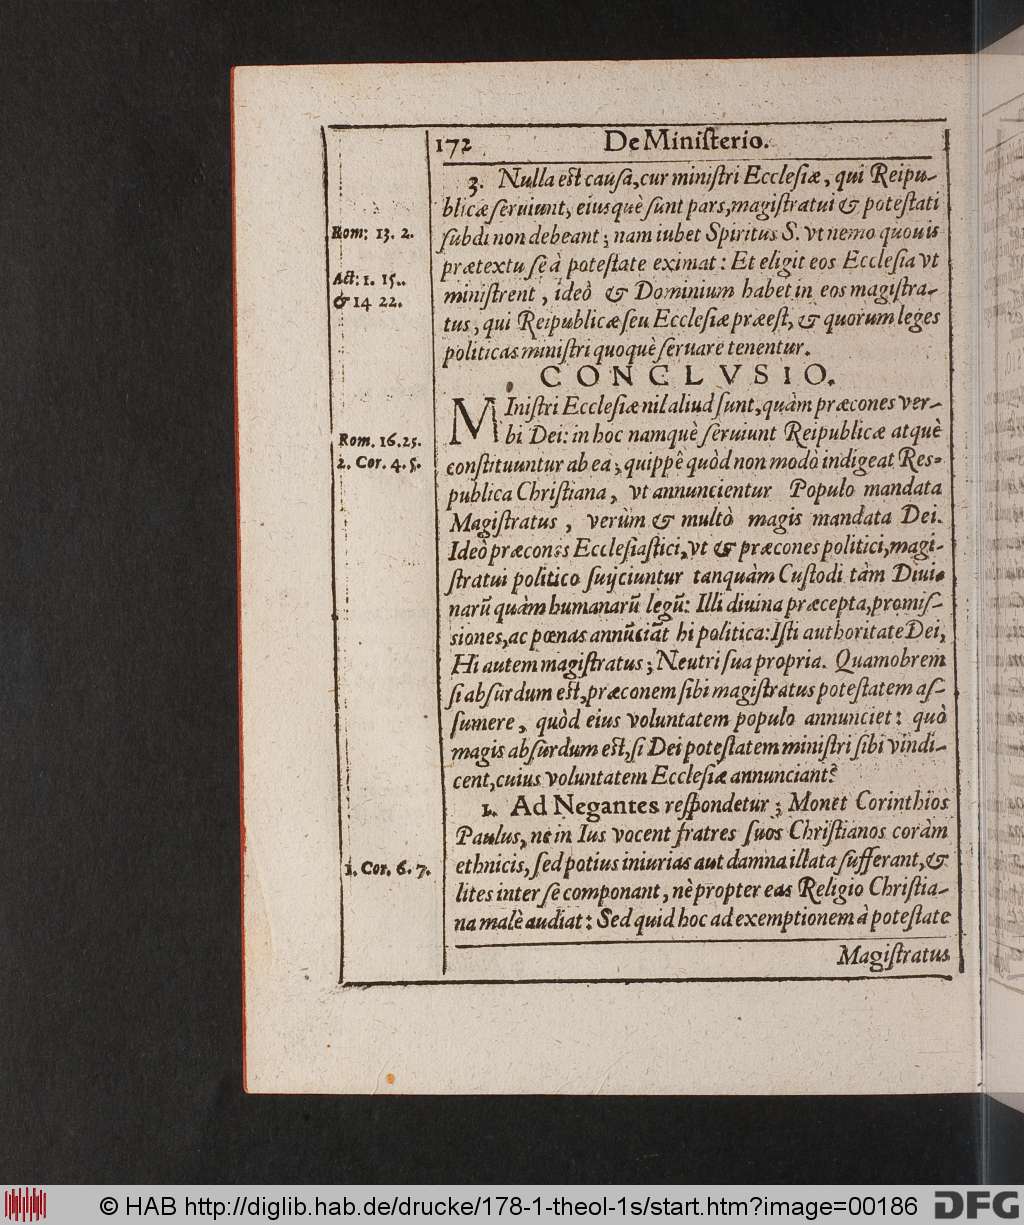 172 De Miniſterio.
3. Nulla eſt cauſa, cur miniſtri Eccleſiæ, qui Reipu-
blicæ ſeruiunt, eiusquè ſunt pars, magiſtratui & poteſtati
Rom: 13. 2. ſubdi non debeant; nam iubet Spiritus S. vt nemo quouis
prætextu ſe à poteſtate eximat: Et eligit eos Eccleſia vt
Act: 1. 15..
& 14 22. miniſtrent, ideò & Dominium habet in eos magiſtra-
tus, qui Reipublicæ ſeu Eccleſiæ præeſt, & quorum leges
politicas miniſtri quoquè ſeruare tenentur.
CONCLVSIO.
MIniſtri Eccleſiæ nil aliud ſunt, quàm præcones ver-
Rom. 16. 25. bi Dei: in hoc namquè ſeruiunt Reipublicæ atquè
2. Cor. 4. 5. conſtituuntur ab ea; quippê quòd non modò indigeat Res-
publica Chriſtiana, vt annuncientur Populo mandata
Magiſtratus, verùm & multò magis mandata Dei.
Ideò præcones Eccleſiaſtici, vt & præcones politici, magi-
ſtratui politico ſuijciuntur tanquàm Cuſtodi tàm Diui-
narū quàm humanarū legū: Illi diuina præcepta, promiſ-
siones, ac pœnas annūciāt hi politica: Iſti authoritate Dei,
Hi autem magiſtratus; Neutri ſua propria. Quamobrem
ſi abſurdum eſt, præconem ſibi magiſtratus poteſtatem aſ-
ſumere, quòd eius voluntatem populo annunciet: quò
magis abſurdum eſt, ſi Dei poteſtatem miniſtri ſibi vindi-
cent, cuius voluntatem Eccleſiæ annunciant?
1. Ad Negantes reſpondetur; Monet Corinthios
Paulus, ne in Ius vocent fratres ſuos Chriſtianos coràm
1. Cor. 6. 7. ethnicis, ſed potius iniurias aut damna illata ſufferant, &
lites inter ſe componant, nè propter eas Religio Chriſtia-
na malè audiat: Sed quid hoc ad exemptionem à poteſtate
Magiſtratus
© HAB http://diglib.hab.de/drucke/178-1-theol-1s/start.htm?image=00186 DFG